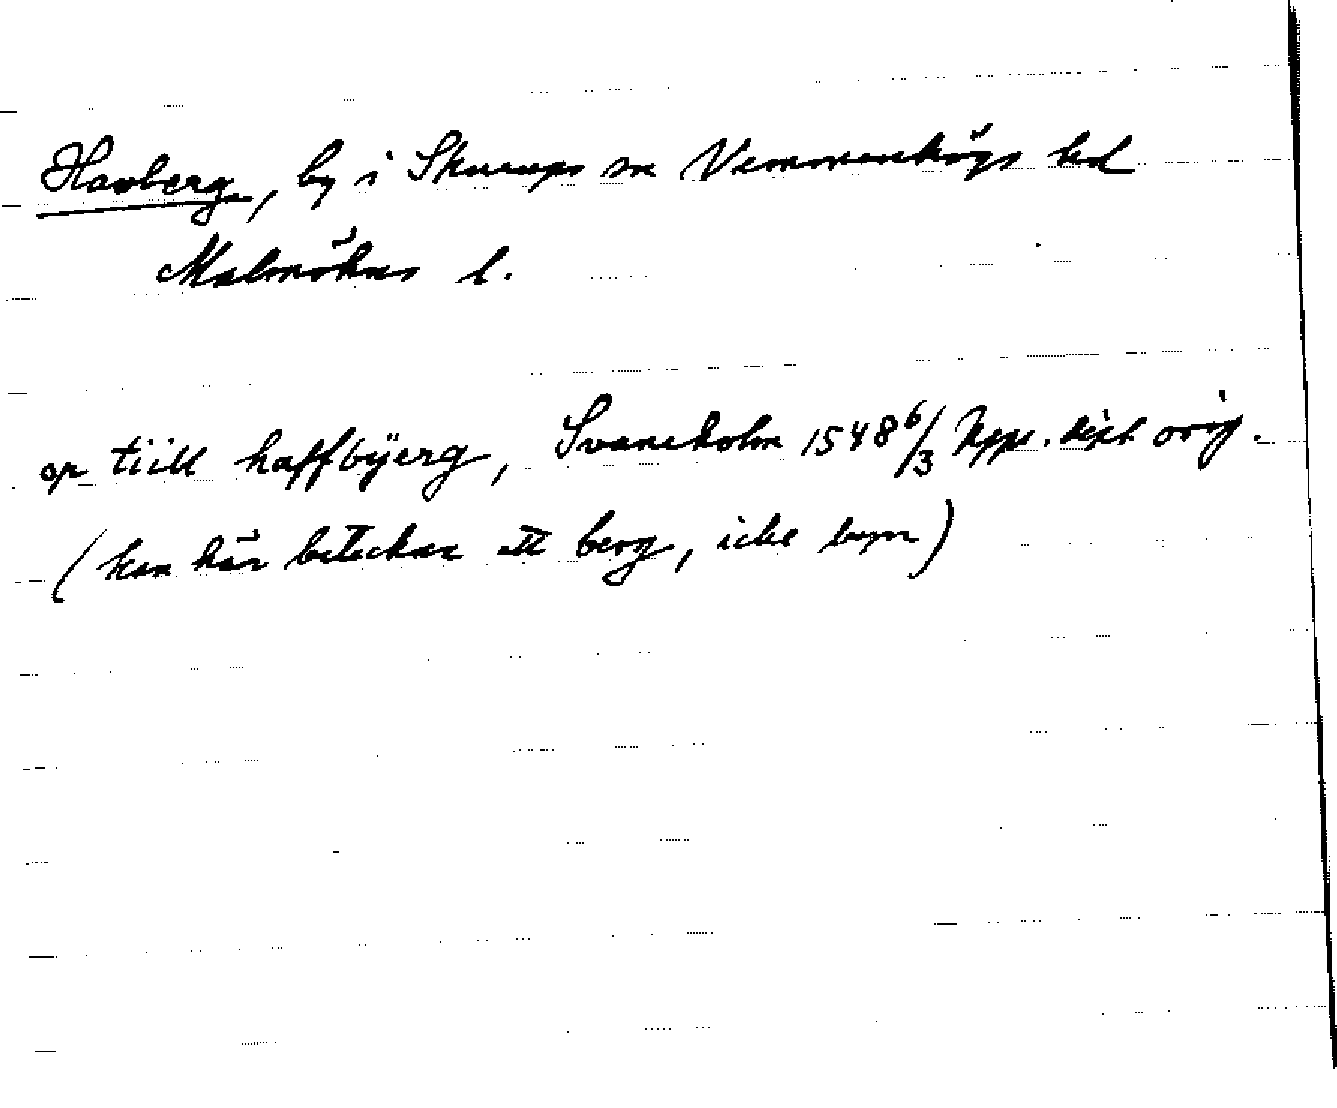 Havberg, by i Skurups sn Vemmenhögs hd
Malmöhus l.
op tiill haffbÿerg, Svaneholm 1548 6/3 Upps. dipl. orig.
(kan här beteckna ett berg, icke byn)